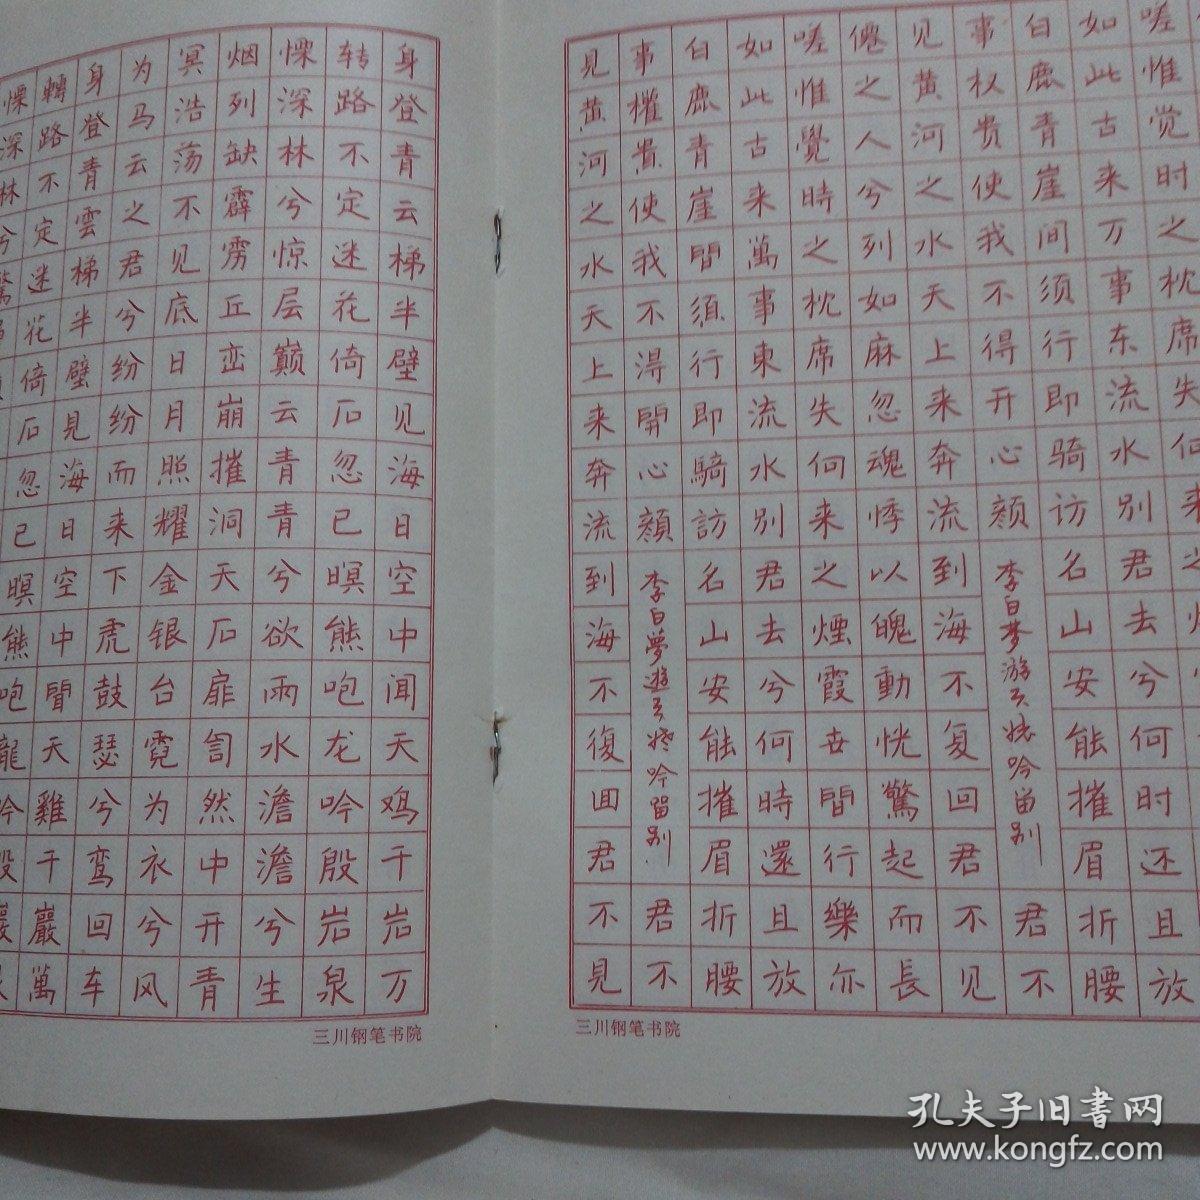 嗟惟觉时之枕席失何来之
如此古来万事东流水别君去兮何时还且放
白鹿青崖间须行即骑访名山安能摧眉折腰
事权贵使我不得开心颜 李白梦游天姥吟留别 君不
见黄河之水天上来奔流到海不复回君不见
僊之人兮列如麻忽魂悸以魄動恍驚起而長
嗟惟覺時之枕席失何来之煙霞世間行樂亦
如此古来萬事東流水別君去兮何時還且放
白鹿青崖間須行即騎訪名山安能摧眉折腰
事權貴使我不得開心顏 李白夢遊天姥吟留别 君不
見黄河之水天上来奔流到海不復回君不見
三川钢笔书院
身登青云梯半壁见海日空中闻天鸡千岩万
转路不定迷花倚石忽已暝熊咆龙吟殷岩泉
慄深林兮惊层巅云青青兮欲雨水澹澹兮生
烟列缺霹雳丘峦崩摧洞天石扉訇然中开青
冥浩荡不见底日月照耀金银台霓为衣兮风
为马云之君兮纷纷而来下虎鼓瑟兮鸾回车
身登青雲梯半壁見海日空中聞天雞千巖萬
轉路不定迷花倚石忽已暝熊咆龍吟殷巖泉
慄深林兮驚
三川钢笔书院
孔夫子旧书网
www.kongfz.com